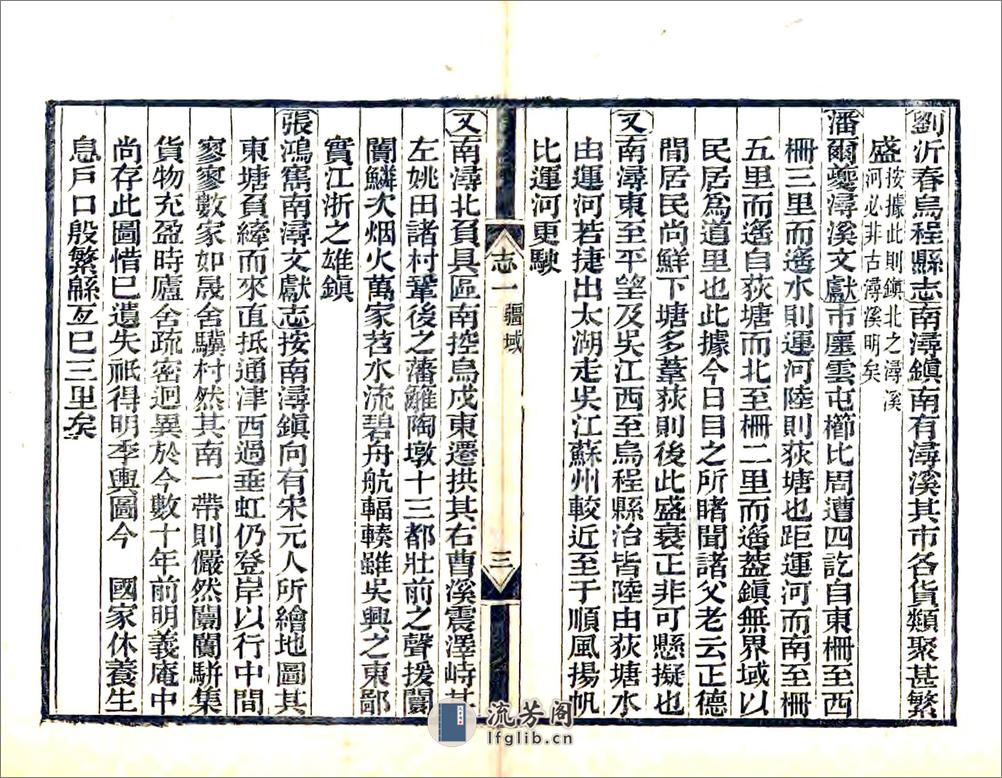 劉沂春烏程縣志南潯鎮南有潯溪其市各貨類聚甚繁
盛按據此則鎮北之潯溪
河必非古潯溪明矣
潘爾夔潯溪文獻市廛雲屯櫛比周遭四訖自東柵至西
柵三里而遙水則運河陸則荻塘也距運河而南至柵
五里而遙自荻塘而北至柵二里而遙蓋鎮無界域以
民居為道里也此據今日目之所睹聞諸父老云正德
間居民尚鮮下塘多葦荻則後此盛衰正非可懸擬也
又南潯東至平望及吳江西至烏程縣治皆陸由荻塘水
由運河若捷出太湖走吳江蘇州較近至于順風揚帆
比運河更駛
志一
疆域
三
又南潯北負具區南控烏戍東遷拱其右曹溪震澤峙其
左姚田諸村鞏後之藩籬陶墩十三都壯前之聲援闤
闠鱗次烟火萬家苕水流碧舟航輻輳雖吳興之東鄙
實江浙之雄鎮
張鴻寯南潯文獻志按南潯鎮向有宋元人所繪地圖其
東塘負繂而來直抵通津西過垂虹仍登岸以行中間
寥寥數家如晟舍驥村然其南一帶則儼然闤闠駢集
貨物充盈時廬舍疏密迥異於今數十年前明義庵中
尚存此圖惜已遺失祇得明季輿圖今　國家休養生
息戶口殷繁緜亙巳三里矣
流芳阁
lfglib.cn